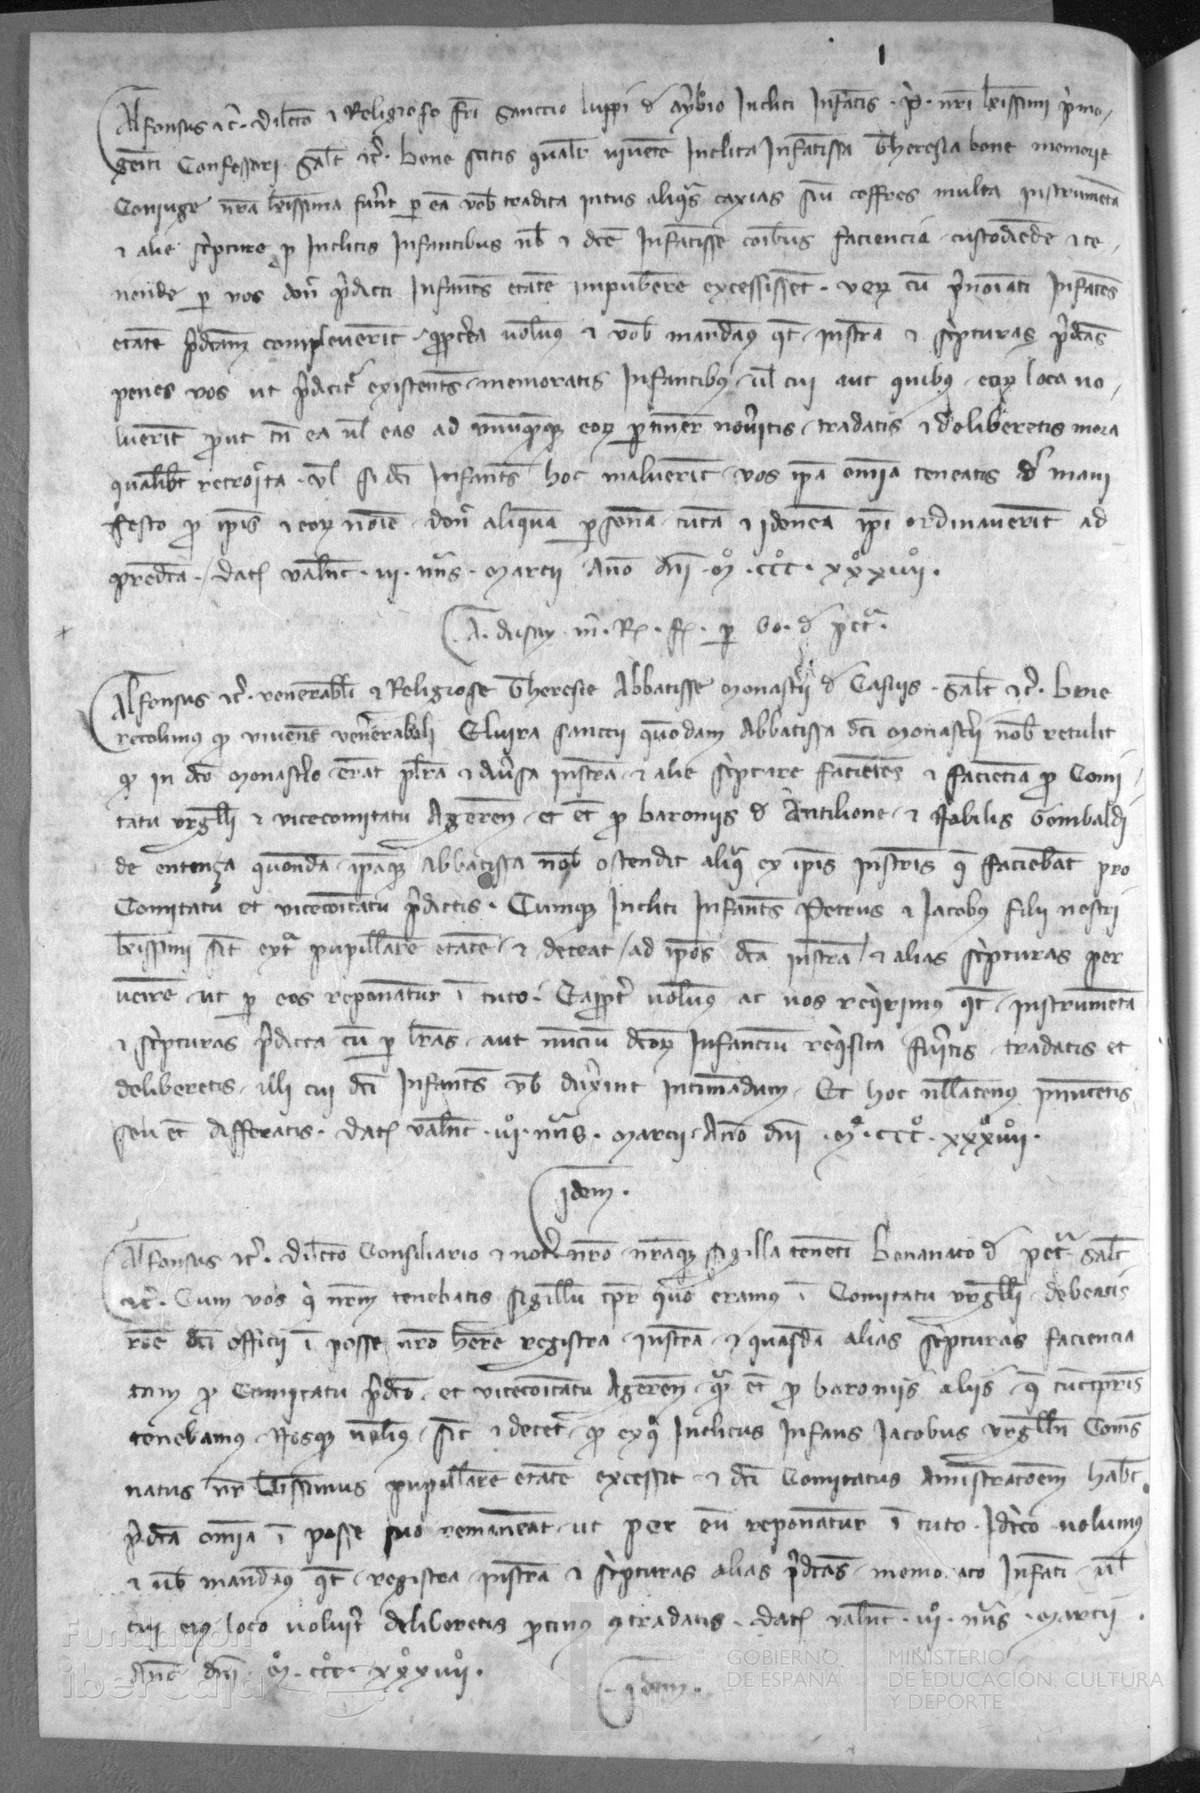 Alfonsus etc. dilecto et Religioso fratri Sanccio luppi de ayerbio Incliti Infantis P. nostri karissimi primo
geniti Confessori Salutem etc. bene scitis qualiter vivente Inclita Infantissa Theresia bone memorie
Coniuge nostra karissima fuerunt per eam vobis tradita intus aliquas caxias siu coffres multa instrumenta
et alie scripture pro Inclitis Infantibus nobis et dicte Infantisse comunibus faciencia custodiende et te
nende per vos donec predicti Infantes etatem impuberem excessissent. verum cum prenominati Infantes
etatem predictam compleverint. propterea volumus et vobis mandamus quatenus instrumenta et scripturas predictas
penes vos ut predicitur existentes memoratis Infantibus vel cui aut quibus eorum loca vo
luerint prout tamen ea vel eas ad unumquemque eorum pertinere noveritis tradatis et deliberetis mora
qualibet retroiecta. vel si dicti Infantes hoc maluerint vos ipsa omnia teneatis de mani
festo pro ipsis et eorum nomine donec aliquam personam tutam et idoneam ipsi ordinaverint ad
predicta. Datum valencie. VI. nonas. Marcii Anno domini Mº CCCº XXXº VIIº.
A. dusay m. R. f. per bo. de petra.
Alfonsus etc. venerabili et Religiose Theresie Abbatisse Monasterii de Casuis. Salutem etc. Bene
recolimus quod vivens venerabili Eluira sanccii quondam Abbatissa dicti Monasterii nobis retulit
quod in dicto Monasterio erant plura et diversa instrumenta et alie scripture facientes et faciencia pro Comi
tatu urgelli et vicecomitatu Ageren. et etiam pro baroniis de Antilione et Nobilis Gombaldi
de entença quondam ipsaque abbatissa nobis ostendit aliqua ex ipsis instrumentis que faciebant pro
Comitatu et vicecomitatu predictis. Cumque Incliti Infantes Petrus et Jacobus filii nostri
karissimi sint extra pupillarem etatem et deceat ad ipsos dicta instrumenta et alias scripturas per
venire ut per eos reponantur in tuto. Eapropter volumus ac vos requirimus quatenus instrumenta
et scripturas predicta cum per literas aut nuncium dictorum Infancium requisita fueritis tradatis et
deliberetis illi cui dicti Infantes vobis duxerint intimandum. Et hoc nullatenus permutetis
seu etiam differatis. Datum valencie. VIº. nonas. Marcii Anno domini Mº CCCº XXXº VIIº.
Idem.
Alfonsus etc. dilecto Consiliario et notario nostro nostraque sigilla tenenti Bonanato de petra Salutem
etc. Cum vos qui nostrum tenebatis sigillum tempore quo eramus in Comitatu urgelli debeatis
racione dicti officii in posse vestro habere registra instrumenta et quasdam alias scripturas faciencia
tam pro Comitatu predicto et vicecomitatu Ageren. quam etiam pro baroniis aliis que tunc temporis
tenebamus. Nosque velimus sicut et decet quod ex quo Inclitus Infans Jacobus urgellen. Comes
natus noster karissimus pupillarem etatem excessit et dicti Comitatus administracionem habet
predicta omnia in posse suo remaneant ut per eum reponantur in tuto. Idcirco volumus
et vobis mandamus quatenus registra instrumenta et scripturas alias predictas memorato Infanti vel
cui eius loco voluerit deliberetis protinus et tradatis. Datum valencie. VIº. nonas. Marcii
Anno domini Mº CCCº XXXº VIIº.
Idem.
Fundación
ibercaja
GOBIERNO
DE ESPAÑA
MINISTERIO
DE EDUCACIÓN, CULTURA
Y DEPORTE